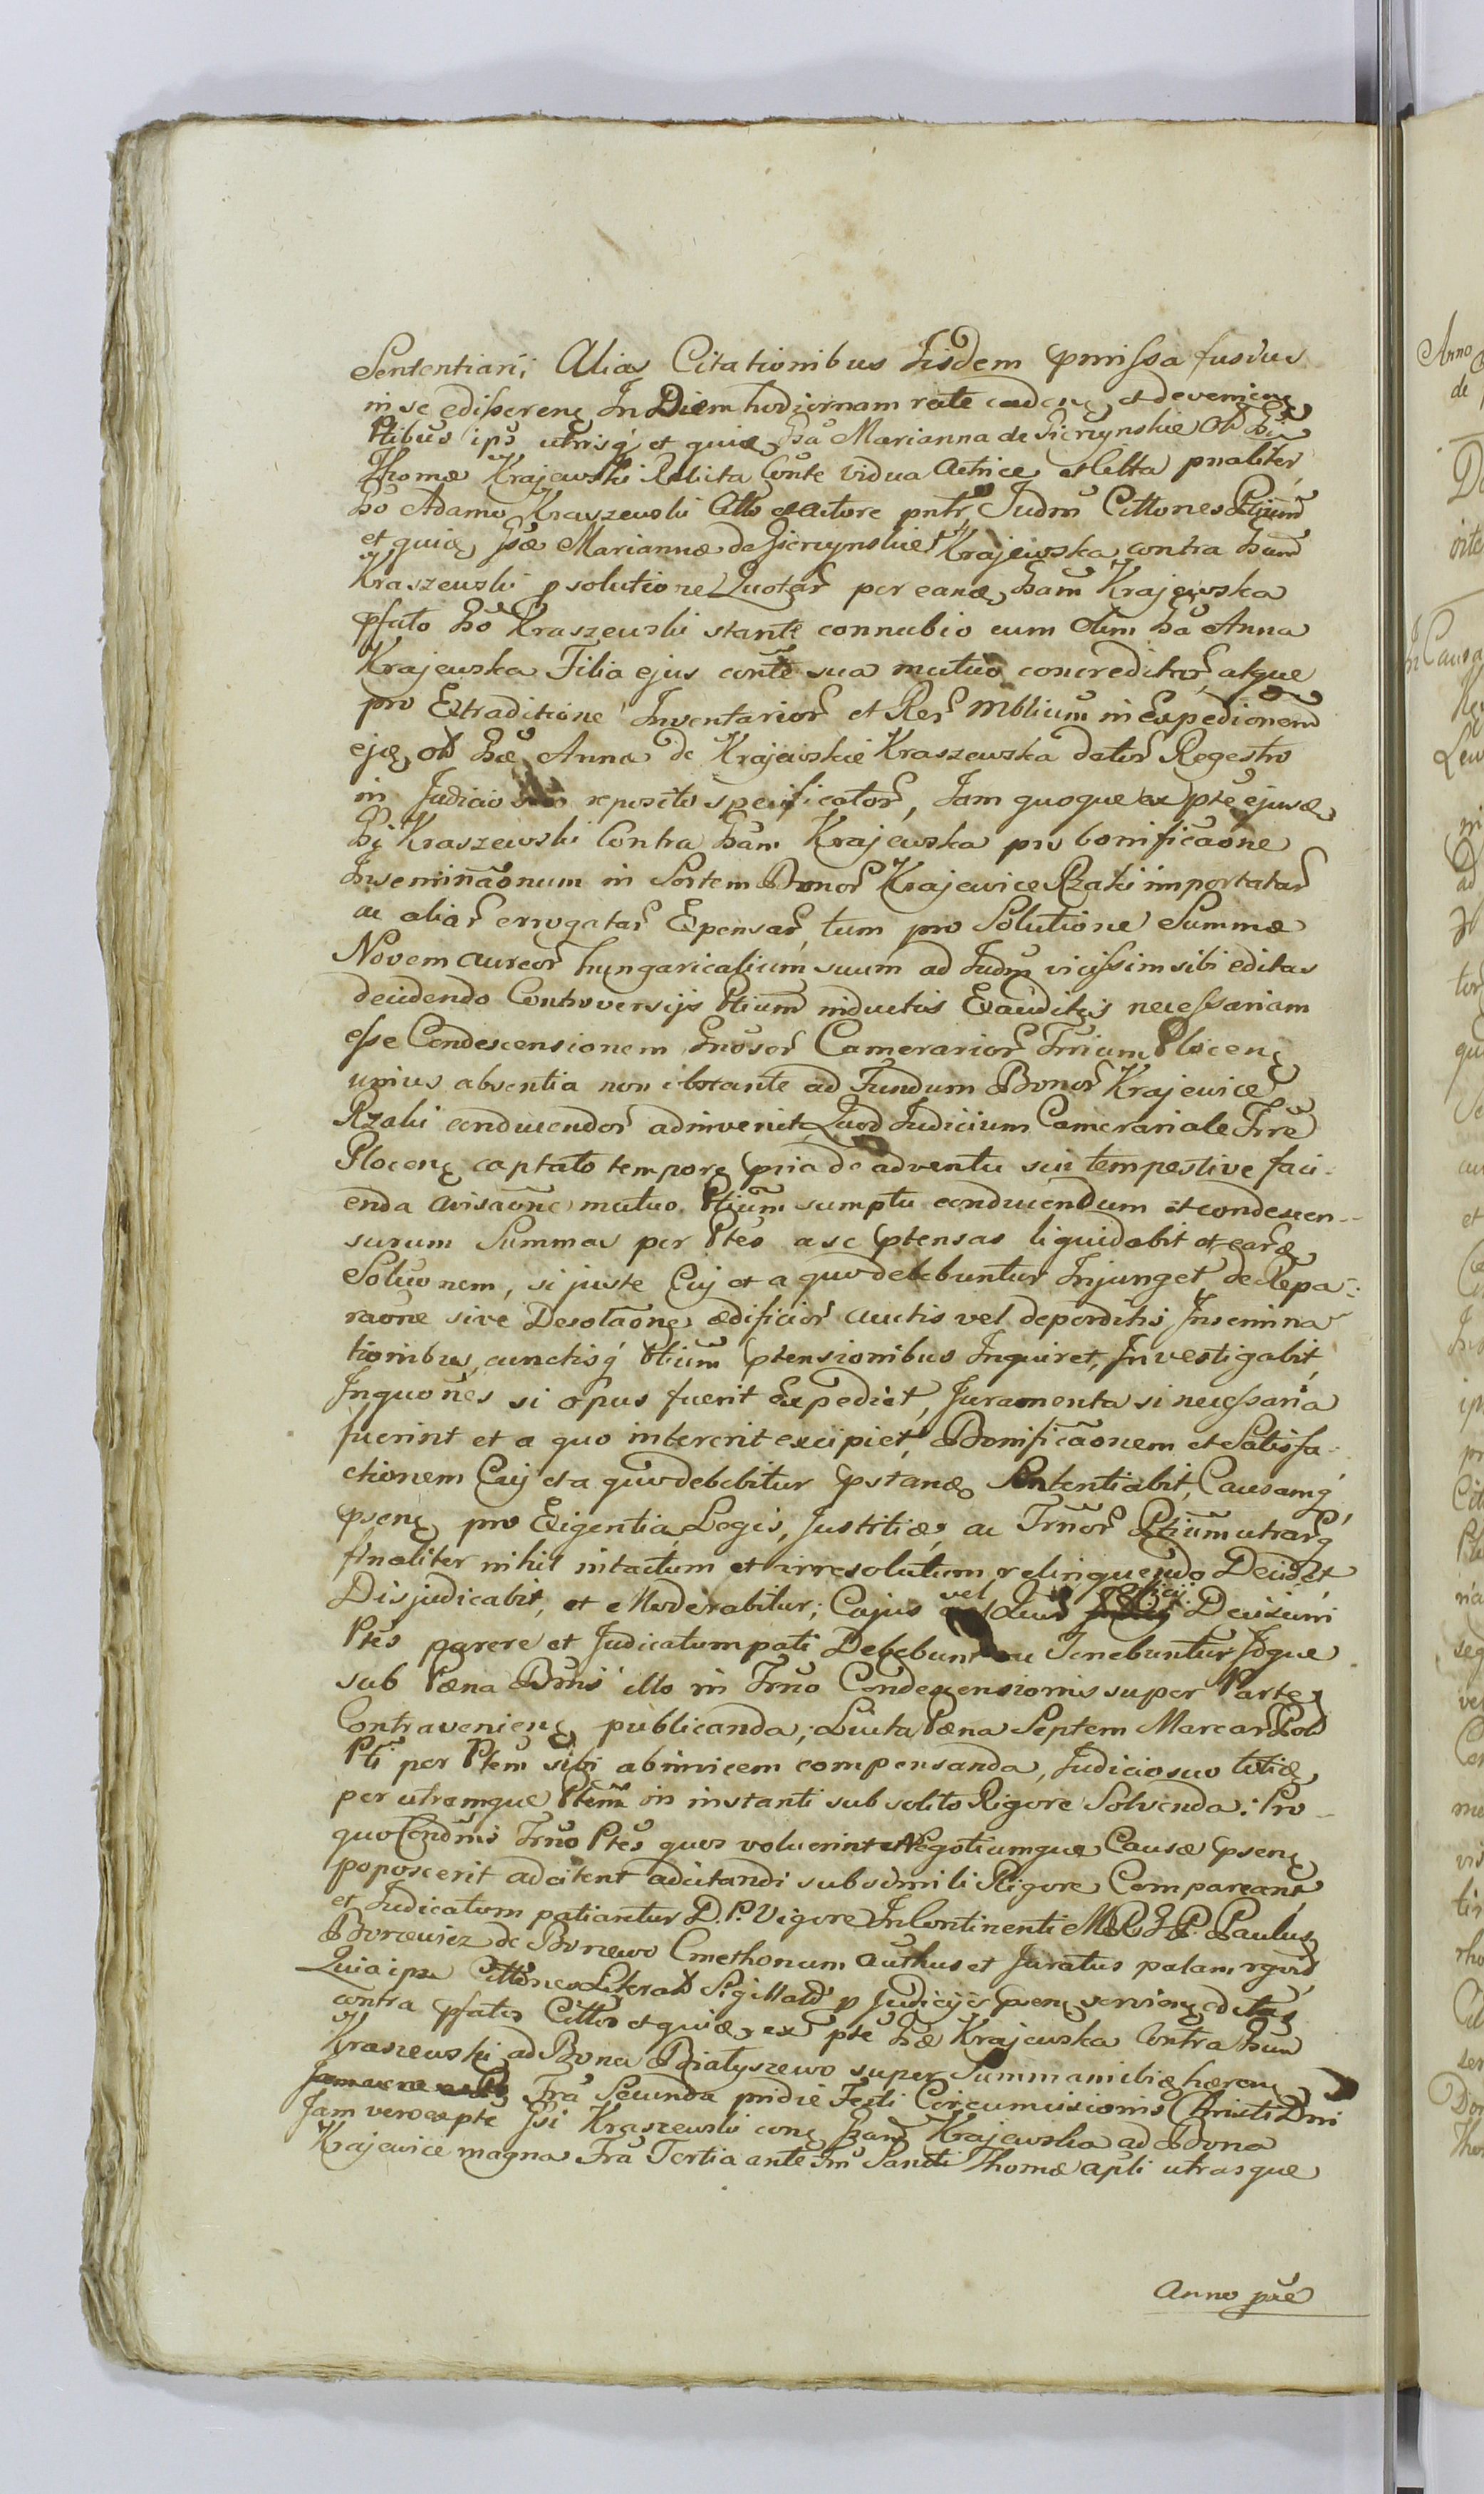 Sententiari; Alias Citationibus Iisdem pmissa fusius
in se edisseren, In Diem hodiernam rate caden, et devenien,
Ptibus ips utrisq et quia, Gsa Marianna de Gierzynskie Olt
Thomæ Krajewski Relicta Conte vidua Actrice et Citta pnaliter,
Gso Adamo Kraszewski Atto et Actore pntr, Judm Cittones Ptium
et quia, Gsæ Mariannæ de Gierzynskie Krajewska contra Gsum
Kraszewski p solutione Quotar per eand, Gsam Krajewska
pfato Gso Kraszewski stante connubio cum olim Gsa Anna
Krajewska Filia ejus conte sua mutuo concreditar, atque
pro Extraditione Inventarior et Rer Mblium in Expedionem
ejq, olt Gsæ Anna de Krajewskie Kraszewska dator Regestro
in Judicio reposito specificator, Jam quoque ex pte ejusd,
Gsi Kraszewski Contra Gsam Krajewska pro bonificaone
Inseminaonum in Sortem Bonor Krajewice Rzaki importatar
ac aliar errogatar Expensar, tum pro Solutione Summæ
Novem aureor hungaricalium suum ad Judm vicissim sibi editas
decidendo Controversijs Ptium inductis Exauditis necessariam
esse Condescensionem Gnosor Camerarior Trrium Plocen,
unius absentia non obstante ad Fundum Bonor Krajewice
Rzaki conducendor adinvenit, Quod Judicium Camerariale Trre
Plocen, captato tempore pria de adventu sui tempestive faci-
enda avisaone mutuo Ptium sumptu conducendum et condescen-
surum Summas per Ptes a se ptensas liquidabit et eard,
Soluonem, si juste Cuj et a quo debebuntur Injunget, de Repa-
raone sive Desolaone ædificior auctis vel deperditis Insemina
tionibus, cunctisq Ptium ptensionibus Inquiret, Investigabit,
Inquones si opus fuerit Expediet, Juramenta si necessaria
fuerint et a quo intererit excipiet, Bonificaonem et Satisfa-
ctionem Cuj et a quo debebitur pstand, Sententiabit, Causamq,
psen, pro Exigentia Legis, Justitiæ, ac Trnor Ptium utrarq
finaliter nihil intactum et irresolutum relinquendo Decidet
Disjudicabit, et Moderabitur; Cujus vel Decisioni
Ptes parere et Judicatum pati Debebunt ac Tenebuntur Idque
sub Pæna Bnis illo in Trno Condescensionis super Parte
Contravenien, publicanda; Luita Pæna Septem Marcar Pol
Pti per Ptem sibi abinvicem compensanda, Judicio suo totid,
per utramque Ptem in instanti sub solito Rigore Solvenda: Pro-
quo Condnis Trno Ptes quos voluerint et Negotiumque Causæ psen,
poposcerit adcitent adcitandi sub simili Rigore Compareant
et Judicatum patiantur D. P. Vigore In Continenti M R J P. Paulus
Borzewicz de Borzewo Cmethonum authus et Juratus palam rgovit
Quia ipse Cittones Literal Sigillatd p Judicijs psen, servien, editas
contra pfatos Cittos et quia, ex pte Gsæ Krajewska Contra Gsum
Kraszewski ad Bona Białyszewo super Summam ibid, hæren,
Fra Secunda pridie Festi Circumcisionis Christi Dni
Jam vero ex pte Gsi Kraszewski con, Gsam Krajewska ad Bona
Krajewice magna Fra Tertia ante Fm Sancti Thomæ apli utrasque
Anno pte